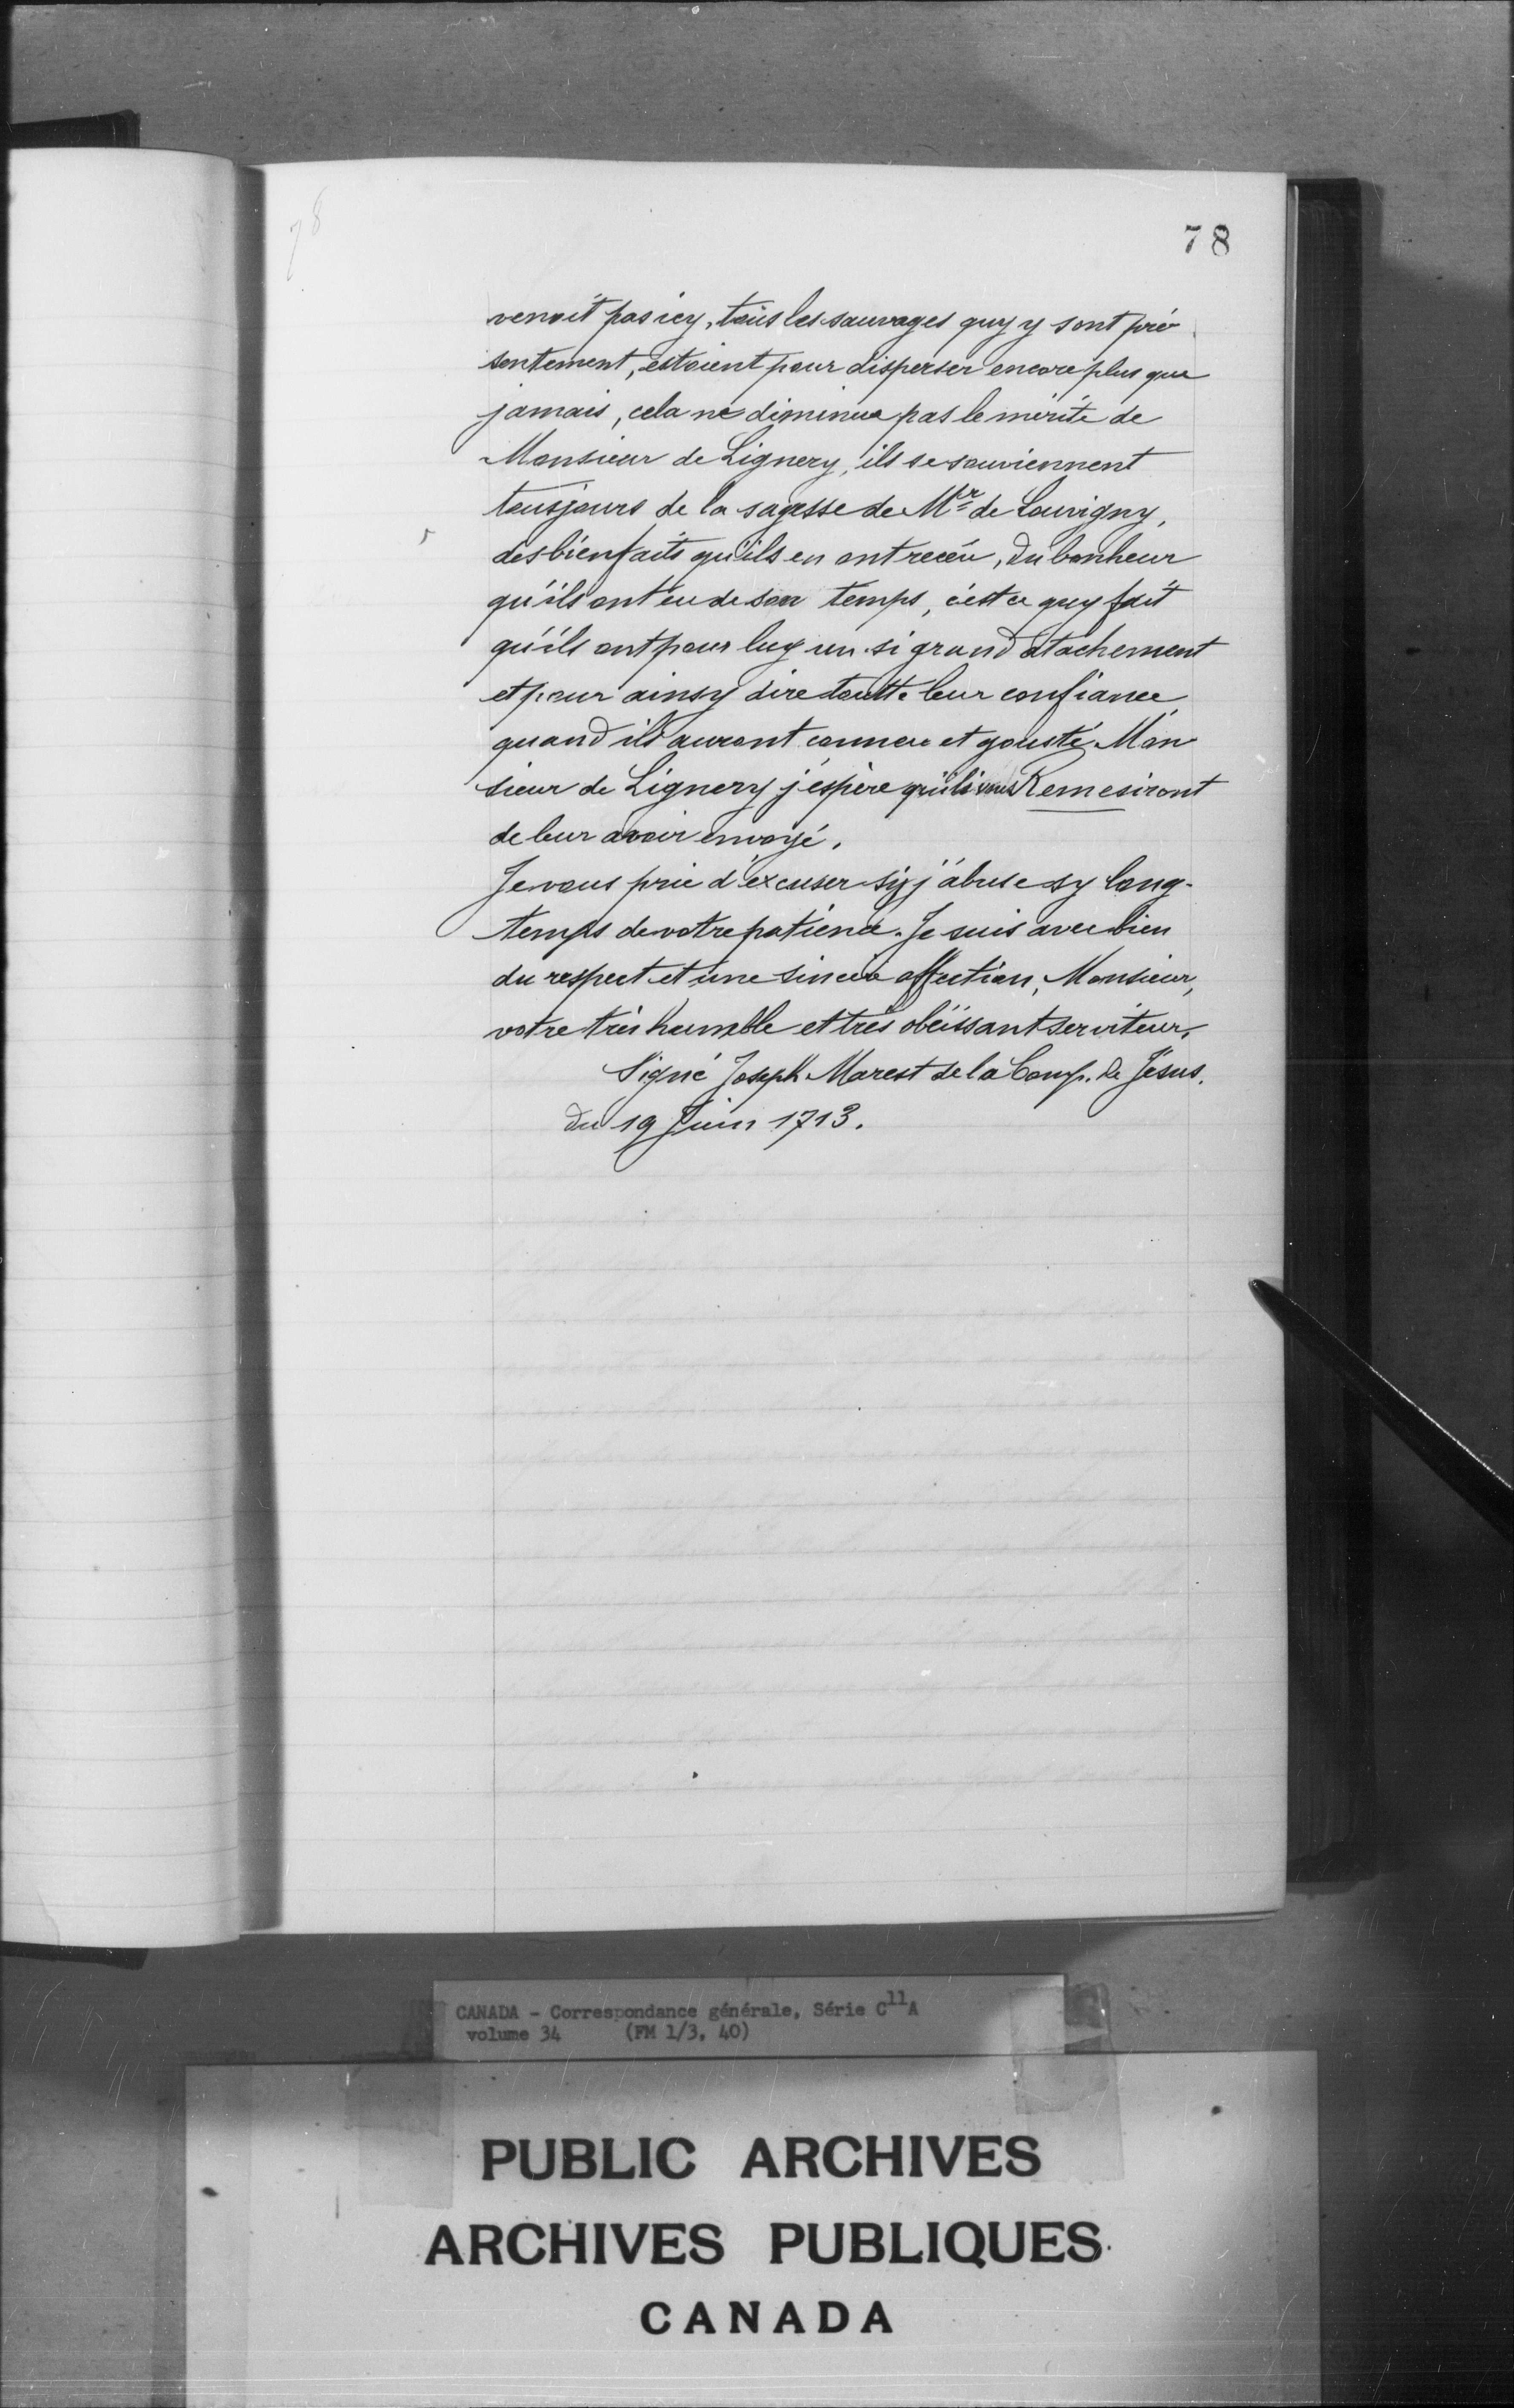 78
78
venoit pas icy, tous les sauvages quy y sont pré
sentement, estoient pour disperser encore plus que
jamais, cela ne diminue pas le mérite de
Monsieur de Lignery, ils se souviennent
tousjours de la sagesse de Mr de Louvigny,
des bienfaits qu'ils en ont receu, du bonheur
qu'ils ont eu de son temps, c'est ce quy fait
qu'ils ont pour luy un si grand atachement
et pour ainsy dire toutte leur confiance,
quand ils auront conneu et gousté Mon
sieur de Lignery j'espère qu'ils vous Remesiront
de leur avoir envoyé.
Je vous prie d'excuser sy j'abuse sy long-
temps de votre patience. Je suis avec bien
du respect et une sincère affection, Monsieur,
votre très humble et très obéissant serviteur,
Signé Joseph Marest de la Comp. de Jésus.
du 19 Juin 1713.
CANADA - Correspondance générale, Série C11A
volume 34 (FM 1/3, 40)
PUBLIC ARCHIVES
ARCHIVES PUBLIQUES
CANADA